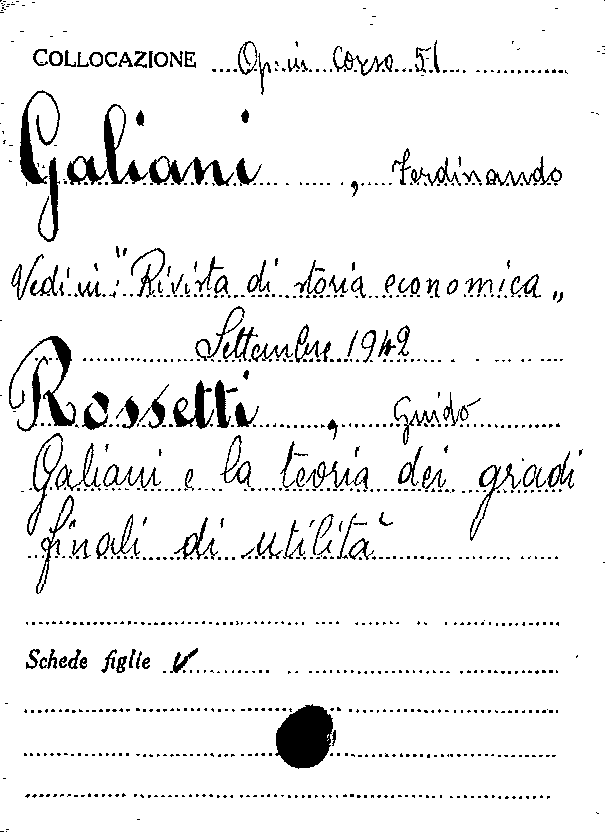 COLLOCAZIONE Op. in corso 51
Galiani, Ferdinando
Vedi in: "Rivista di storia economica„
Settembre 1942
Rossetti, Guido
Galiani e la teoria dei gradi
finali di utilità
Schede figlie v